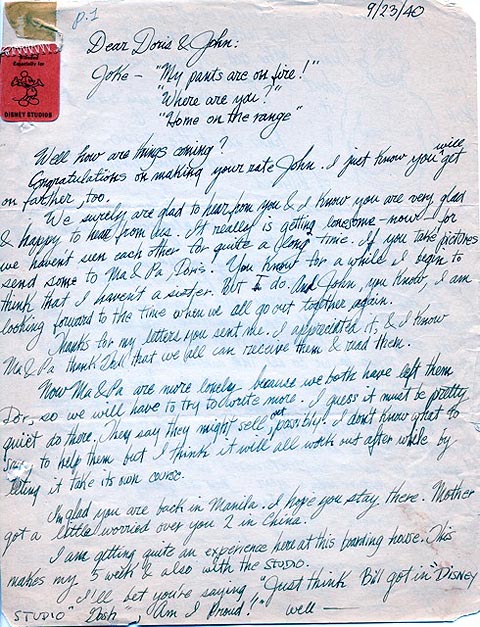 p.1
9/23/40
Especially for
DISNEY STUDIOS
Dear Doris & John:
Joke - "My pants are on fire!"
"Where are you?"
"Home on the range"
Well how are things coming?
Congratulations on making your rate John. I just know you will get
on farther, too.
We surely are glad to hear from you & I know you are very glad
& happy to hear from us. It really is getting lonesome - now - for
we havent seen each other for quite a (long) time. If you take pictures
send some to Ma & Pa, Doris. You know for a while I begin to
think that I haven't a sister. But I do. And John, you know, I am
looking forward to the time when we all go out together again.
Thanks for my letters you sent me. I appreciated it, & I know
Ma & Pa thank that we all can receive them & read them.
Now Ma & Pa are more lonely because we both have left them
Dor, so we will have to try to write more. I guess it must be pretty
quiet do there. They say they might sell out possibly. I don't know what to
to help them but I think it will all work out after while by
leting it take its own course.
Im glad you are back in Manila. I hope you stay there. Mother
got a little worried over you 2 in China.
I am getting quite an experience here at this boarding house. This
makes my 5 week & also with the STUDIO.
I'll bet you're saying "Just think Bill got in "DISNEY
STUDIO" Gosh", Am I Proud!" Well —